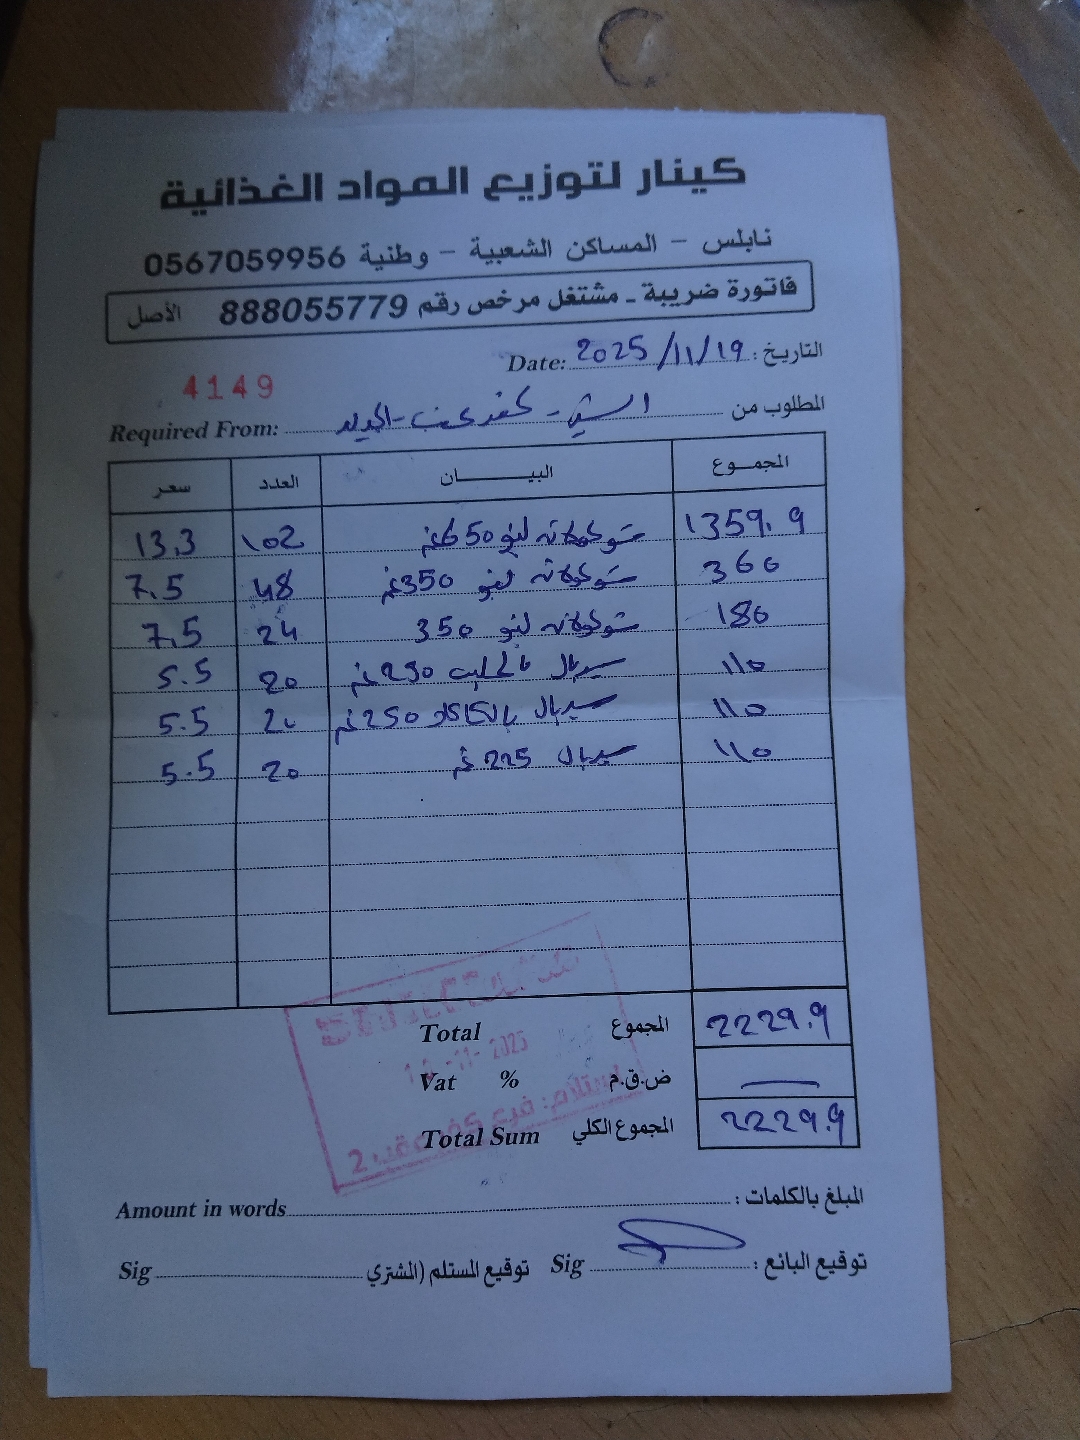 كينار لتوزيع المواد الغذائية
نابلس - المساكن الشعبية - وطنية 0567059956
فاتورة ضريبة - مشتغل مرخص رقم 888055779 الأصل
التاريخ : 2025/11/19 Date:
4149
المطلوب من Required From:
المجمــوع البيـــــان العدد سعر
1359.9 شوكولاته لينو 650غم 102 13.3
360 شوكولاته لينو 350غم 48 7.5
180 شوكولاته لينو 350 24 7.5
110 سيريال بالحليب 250غم 20 5.5
110 سيريال بالكاكاو 250غم 20 5.5
110 سيريال 225 غم 20 5.5
Total المجموع 2229.9
Vat % ض.ق.م
Total Sum المجموع الكلي 2229.9
2025
استلام: فرع كفر عقب 2
Amount in words المبلغ بالكلمات :
Sig توقيع المستلم (الشتري Sig توقيع البائع :